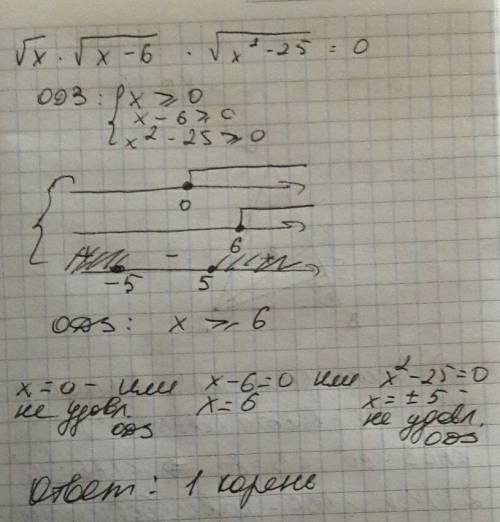 √x · √(x-6) · √(x²-25) = 0
ОДЗ: { x ⩾ 0
x - 6 ⩾ 0
x² - 25 ⩾ 0
0
6
+ - +
-5 5
ОДЗ: x ⩾ 6
x=0 - или x-6=0 или x²-25=0
не удовл. x=6 x=±5 -
ОДЗ не удовл.
ОДЗ
Ответ: 1 корень